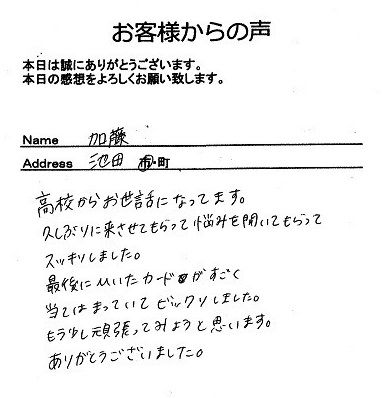 お客様からの声
本日は誠にありがとうございます。
本日の感想をよろしくお願い致します。
Name 加藤
Address 池田 市・町
高校からお世話になってます。
久しぶりに来させてもらって悩みを聞いてもらって
スッキリしました。
最後にひいたカードがすごく
当てはまっていてビックリしました。
もう少し頑張ってみようと思います。
ありがとうございました。